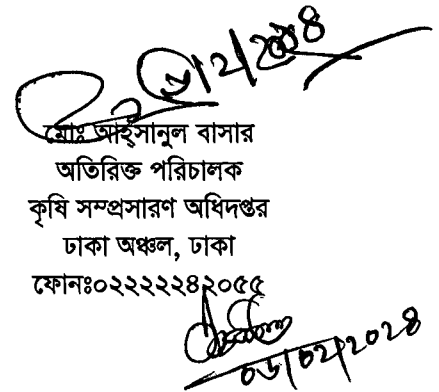 মোঃ আহ্সানুল বাসার
অতিরিক্ত পরিচালক
কৃষি সম্প্রসারণ অধিদপ্তর
ঢাকা অঞ্চল, ঢাকা
ফোনঃ০২২২২২৪২০৫৫
০৬/০২/২০২৪